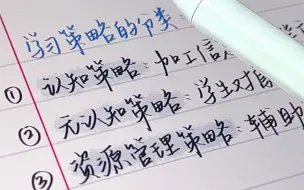 学习策略的分类
① 认知策略：加工信
② 元认知策略：学生对
③ 资源管理策略：辅助